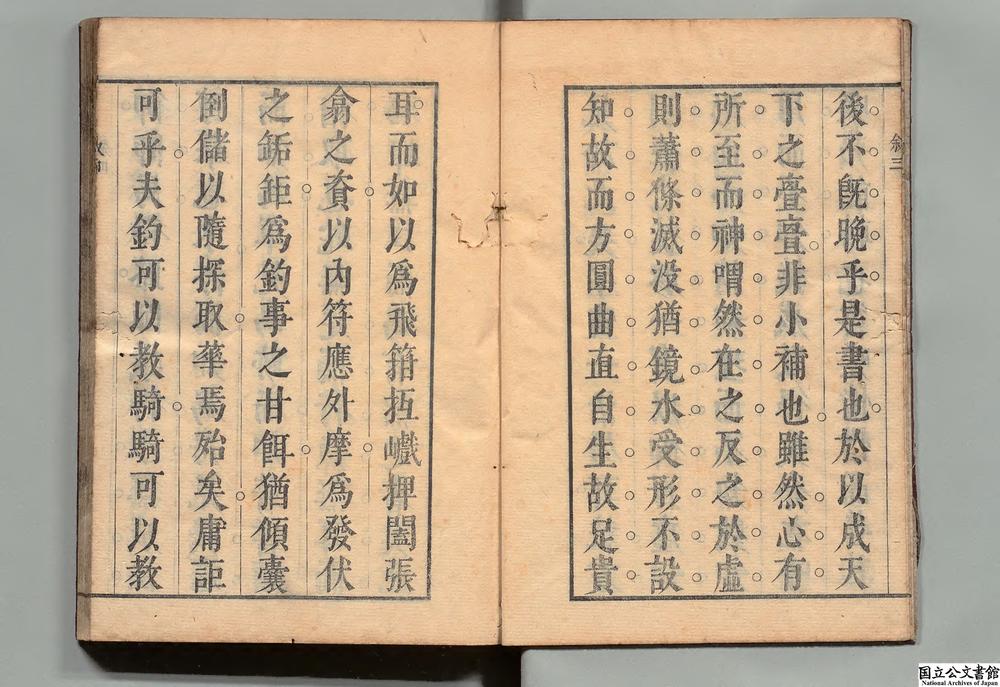 敘三
後不既晚乎是書也於以成天
下之亹亹非小補也雖然心有
所至而神喟然在之反之於虛
則蕭條滅没猶鏡水受形不設
知故而方圓曲直自生故足貴
耳而如以爲飛箝抵巇捭闔張
翕之資以內符應外摩爲發伏
之鉐鉅爲釣事之甘餌猶傾囊
倒儲以隨探取華焉殆矣庸詎
可乎夫釣可以教騎騎可以教
国立公文書館
National Archives of Japan